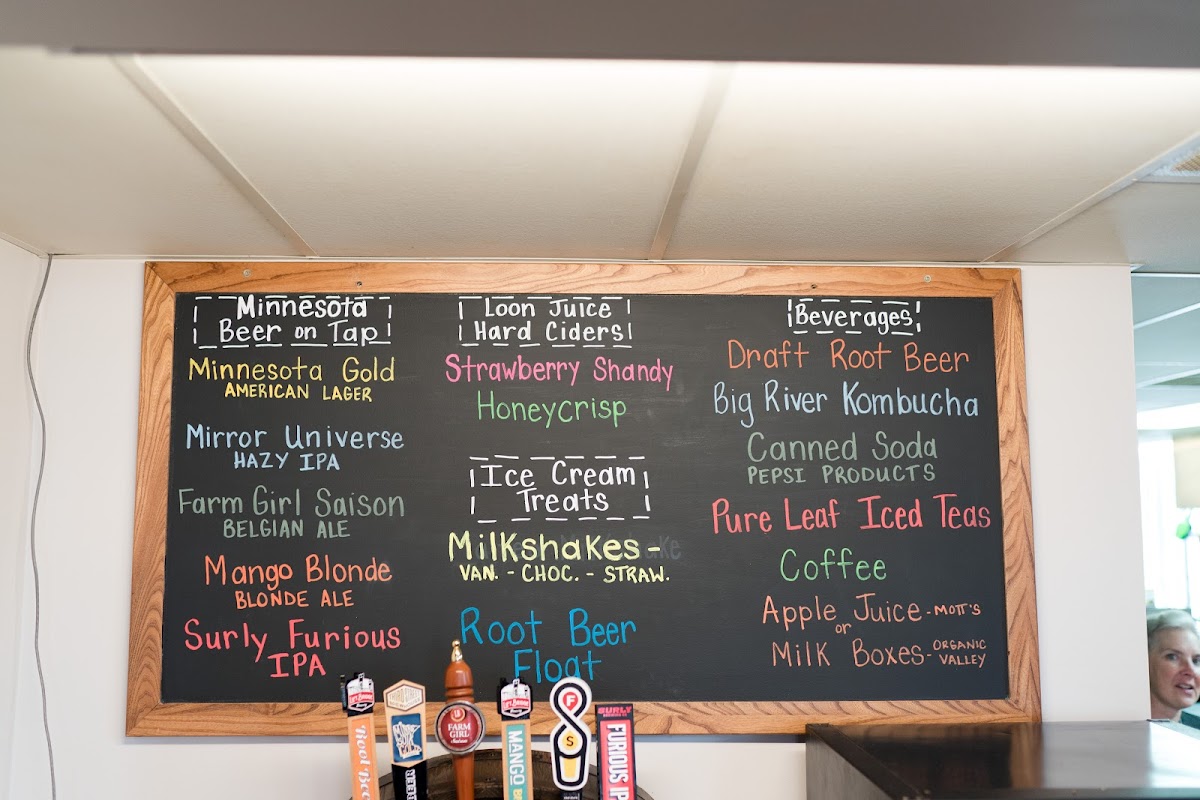 Minnesota
Beer on Tap
Minnesota Gold
AMERICAN LAGER
Mirror Universe
HAZY IPA
Farm Girl Saison
BELGIAN ALE
Mango Blonde
BLONDE ALE
Surly Furious
IPA
Loon Juice
Hard Ciders
Strawberry Shandy
Honeycrisp
Ice Cream
Treats
Milkshakes-
VAN. - CHOC. - STRAW.
Root Beer
Float
Beverages
Draft Root Beer
Big River Kombucha
Canned Soda
PEPSI PRODUCTS
Pure Leaf Iced Teas
Coffee
Apple Juice - MOTT'S
or
Milk Boxes - ORGANIC
VALLEY
ROOT BEER
BEER
FARM
GIRL
Saison
MANGO
F
S
SURLY
FURIOUS IP